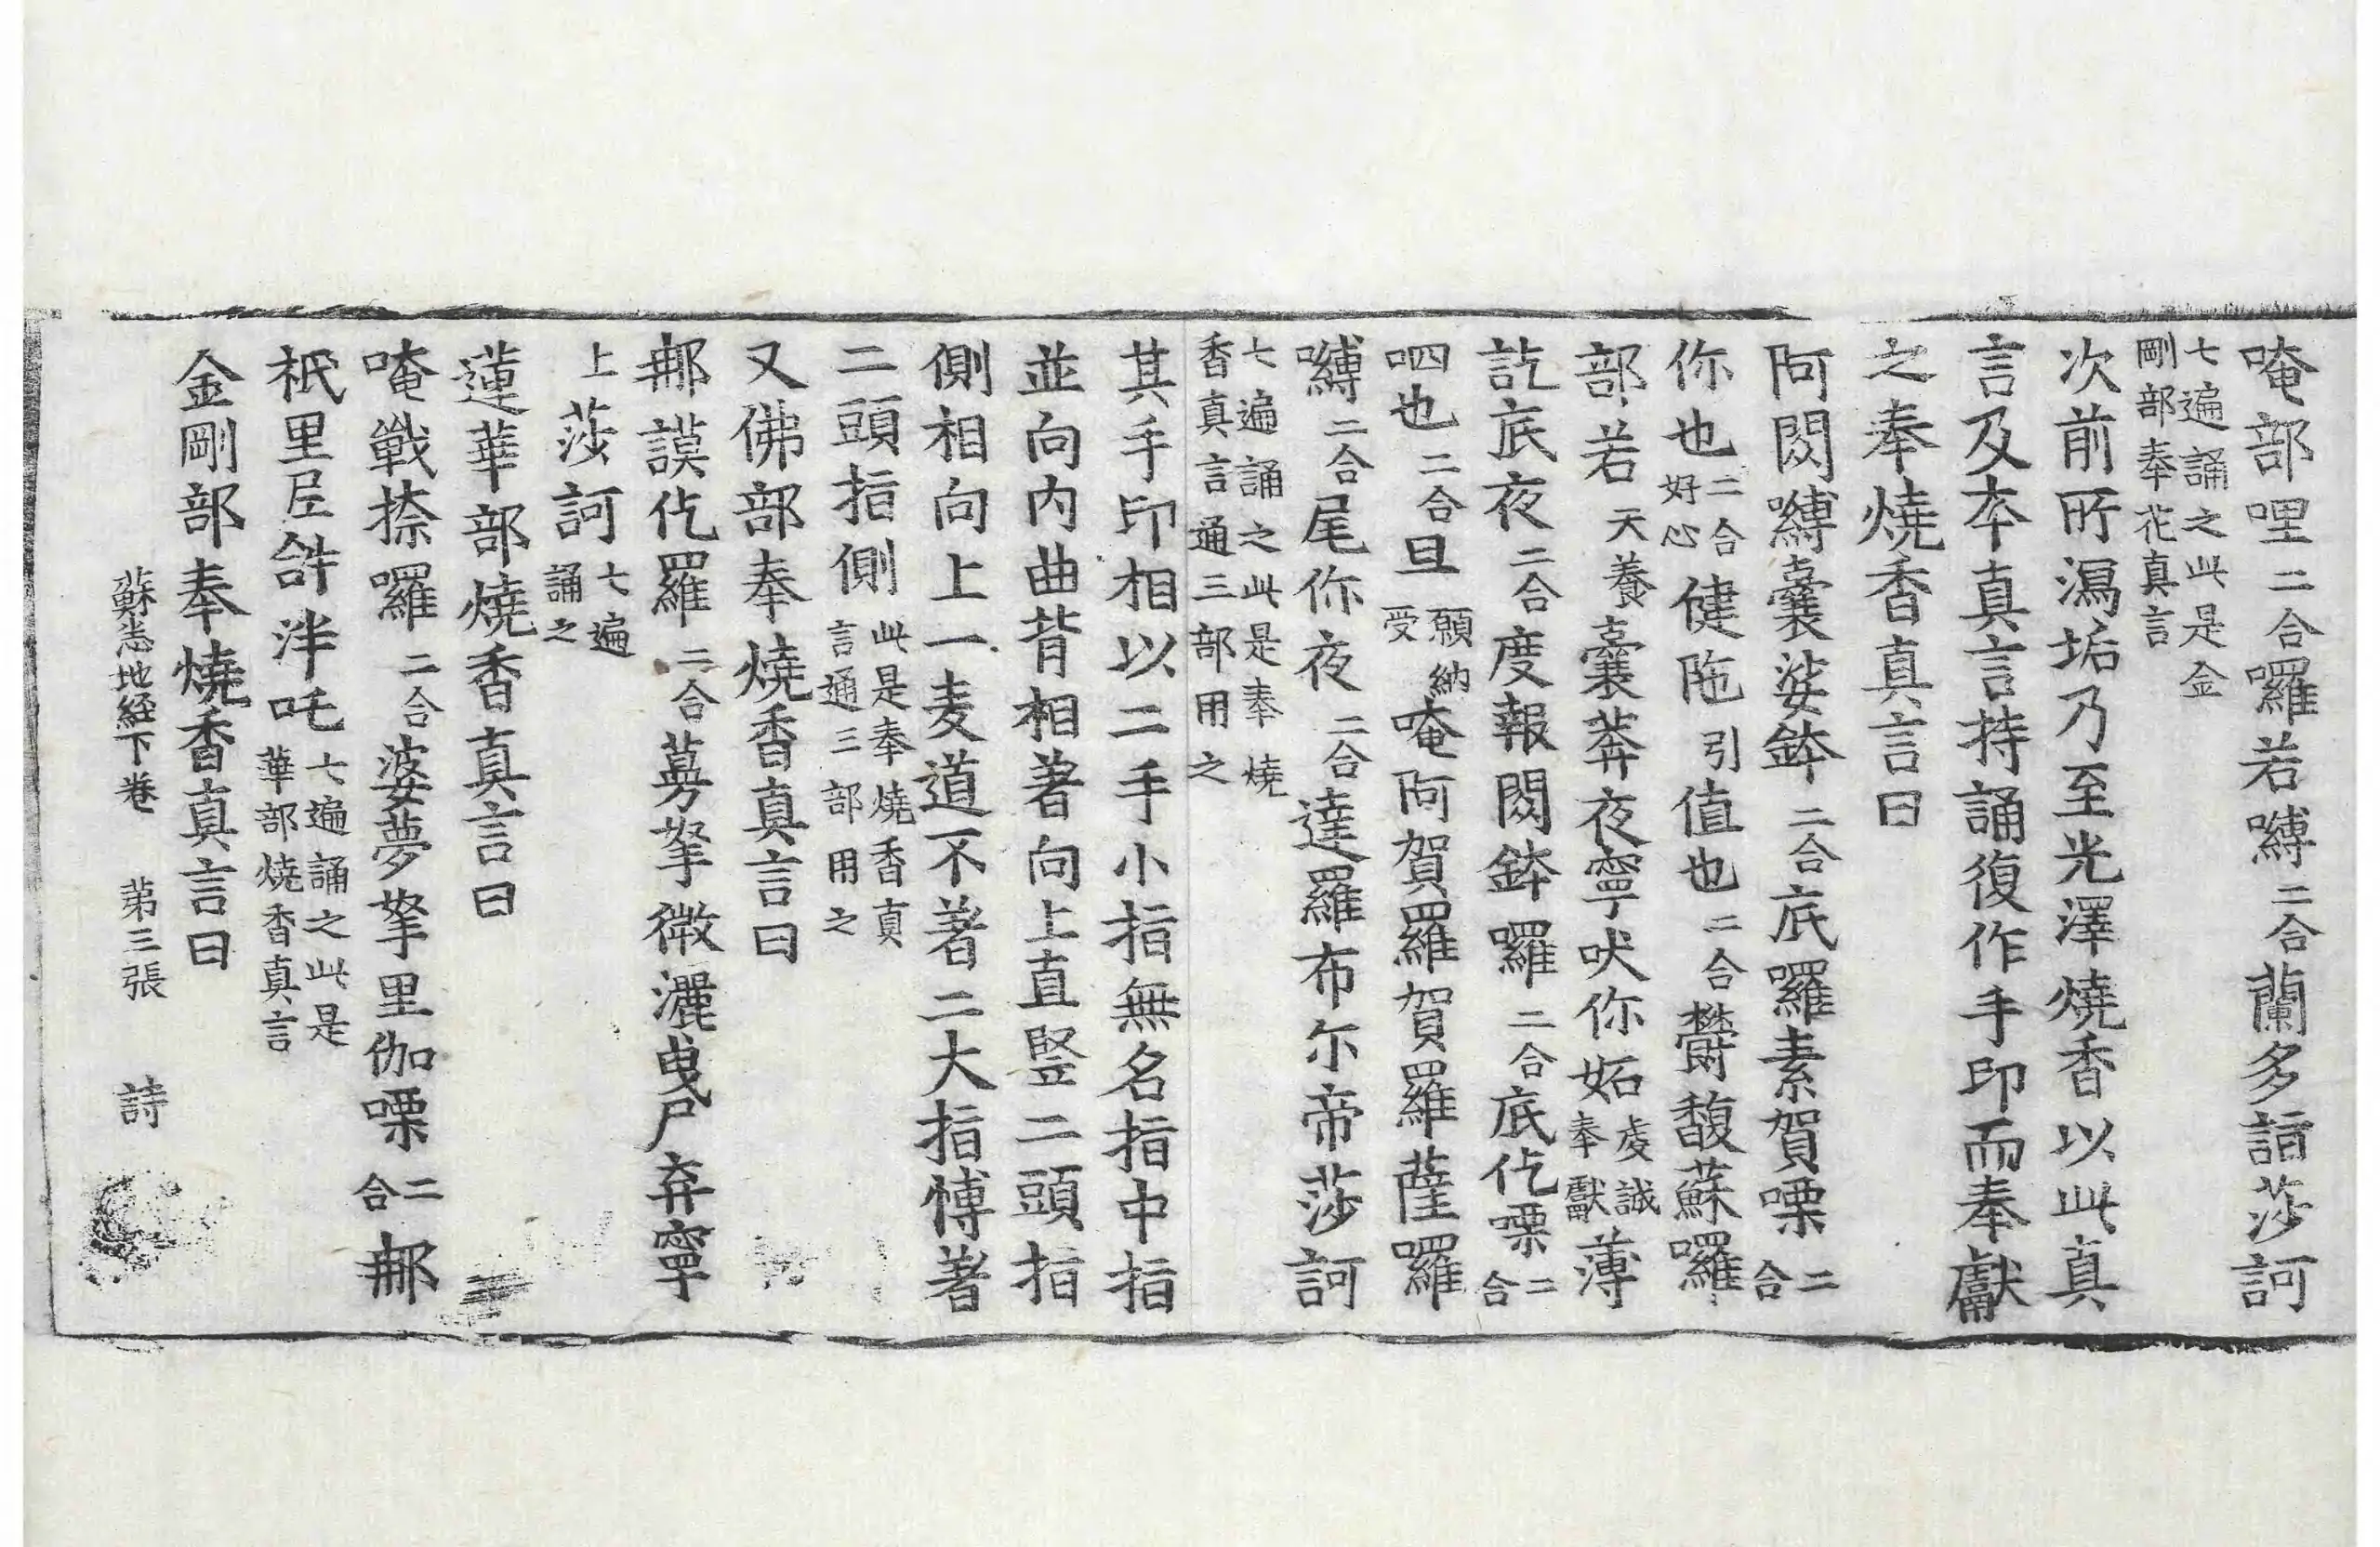 唵部哩二合囉若嚩二合蘭多詣莎訶
七遍誦之此是金
剛部奉花真言
次前所瀉垢乃至光澤燒香以此真
言及本真言持誦復作手印而奉獻
之奉燒香真言曰
阿閦嚩囊娑鉢二合底羅素賀㗚二合
你也二合好心健陁引值也二合欝馥蘇囉
部若天養囊莾夜寧吠你妬虔誠奉獻薄
訖底夜二合度報閦鉢囉二合底仡㗚二合
呬也二合旦願納受唵阿賀羅賀羅薩羅
嚩二合尾你夜二合達羅布尓帝莎訶
七遍誦之此是奉燒
香真言通三部用之
其手印相以二手小指無名指中指
並向內曲背相著向上直竪二頭指
側相向上一麦道不著二大指愽著
二頭指側此是奉燒香真言通三部用之
又佛部奉燒香真言曰
那謨仡羅二合蕚拏微灑曳尸弃寧
上莎訶七遍誦之
蓮華部燒香真言曰
唵戰捺囉二合婆夢拏里伽㗚二合那
祇里𡰱泮吒七遍誦之此是華部燒香真言
金剛部奉燒香真言曰
蘇悉地經下卷 苐三張 詩